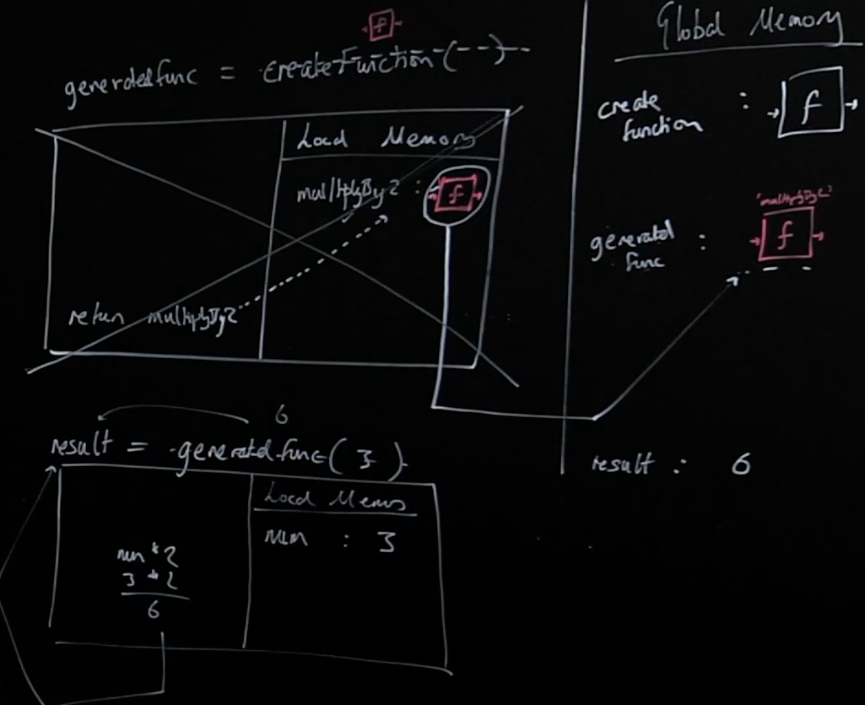 f
generatedfunc = createFunction(--)
Local Memory
multiplyBy2 : f
return multiplyBy2
6
result = generatedfunc(3)
Local Memory
num : 3
num * 2
3 * 2
6
Global Memory
create function : f
"multiplyBy2"
generated func : f
result : 6